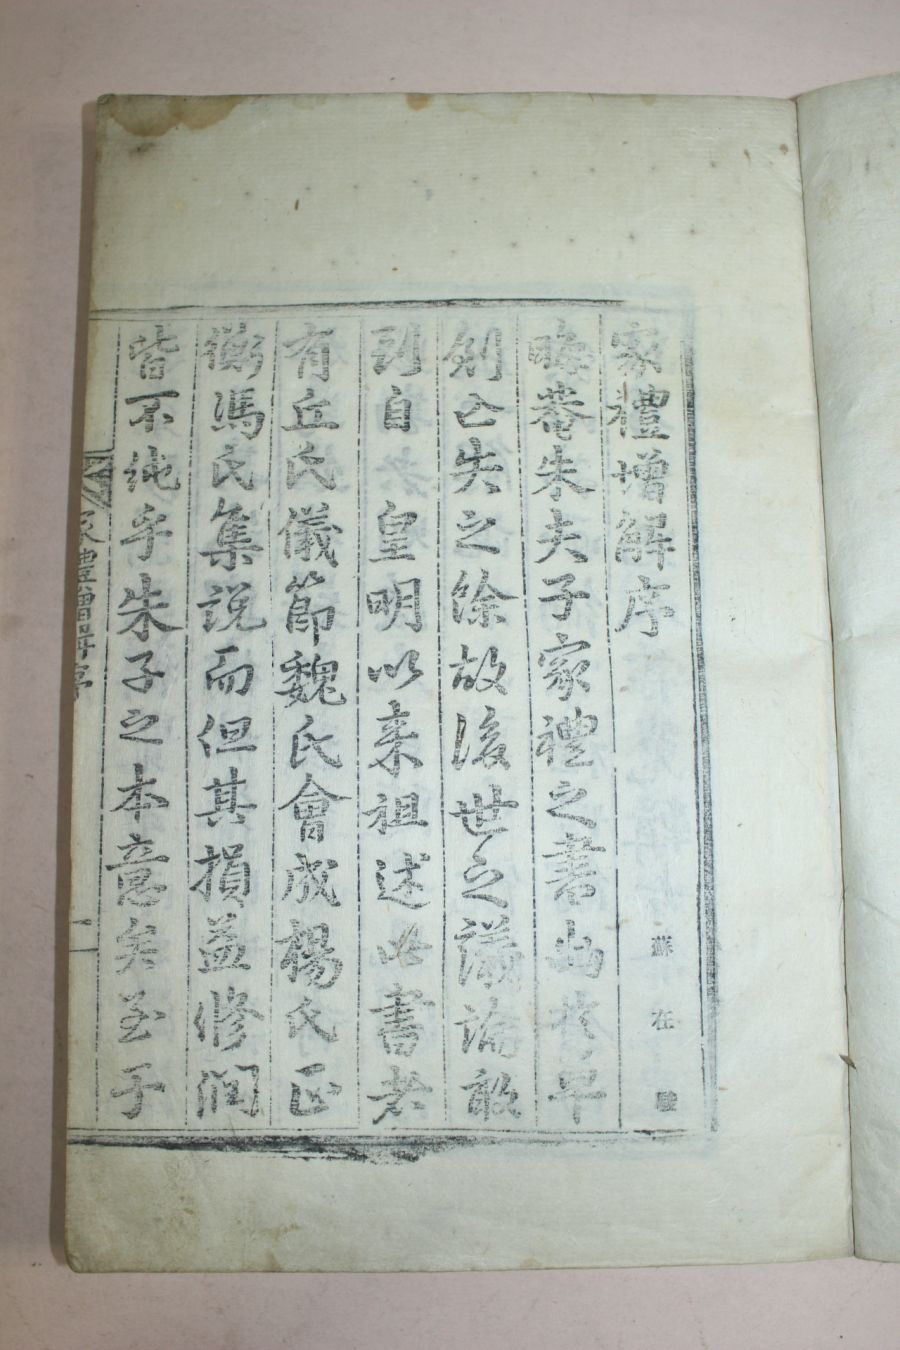 家禮增解序
晦菴朱夫子家禮之書出於早
剏亡失之餘故後世之議論敢
到自 皇明以來祖述此書者
有丘氏儀節魏氏會成楊氏正
衡馮氏集說而但其損益修潤
皆不純乎朱子之本意矣至于
家禮增解序
一